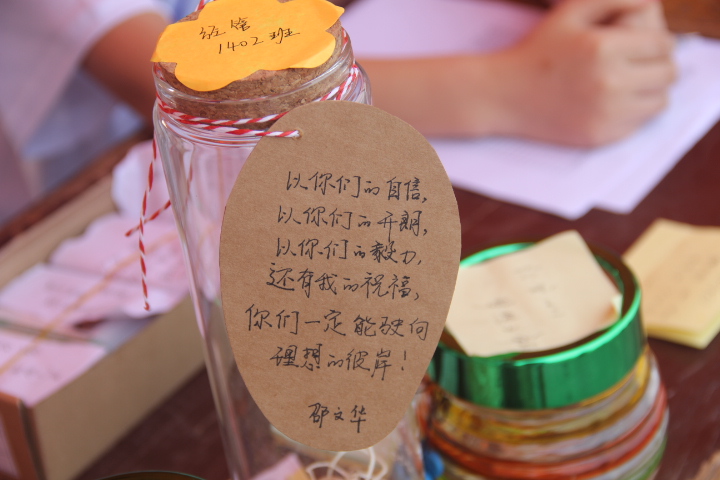 经管
1402班
以你们的自信,
以你们的开朗,
以你们的毅力,
还有我的祝福,
你们一定能驶向
理想的彼岸!
邵文华